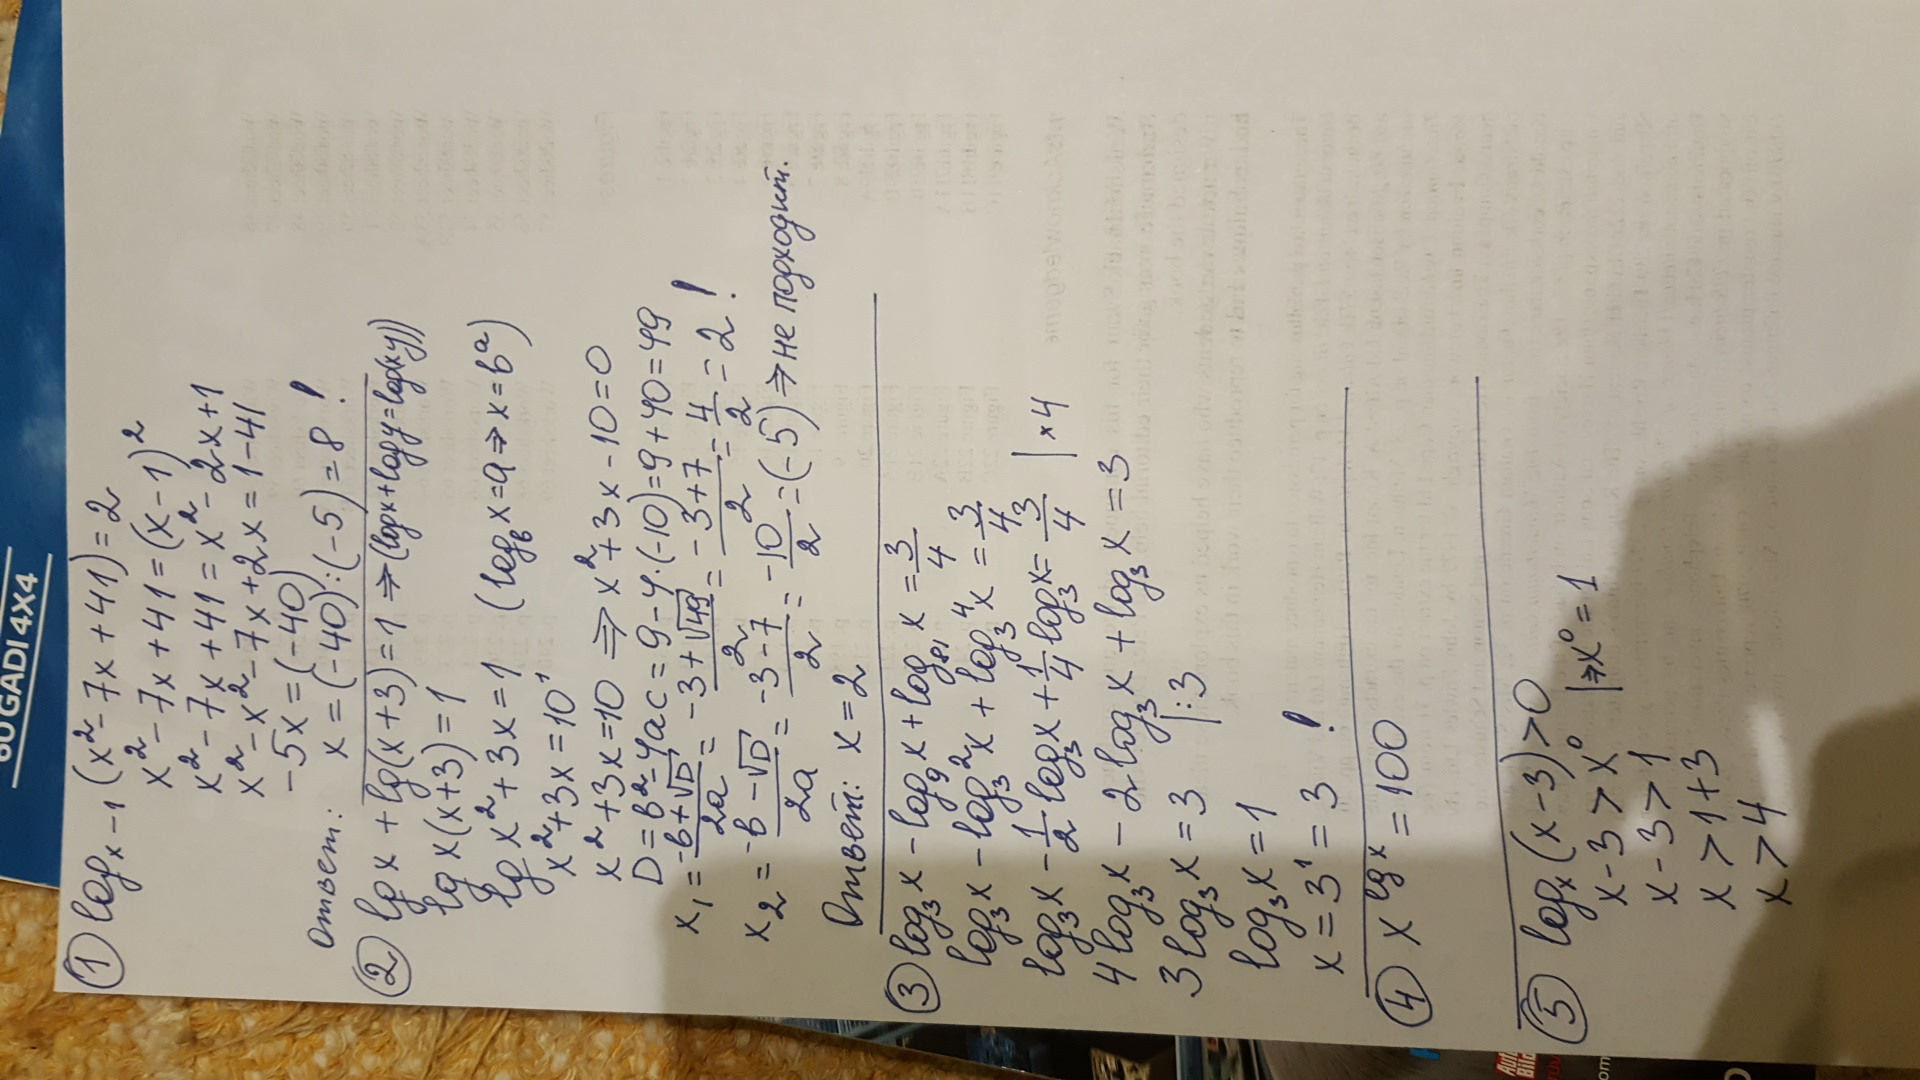 ① log x-1 (x²-7x+41)=2
x²-7x+41=(x-1)²
x²-7x+41=x²-2x+1
x²-x²-7x+2x=1-41
-5x=(-40)
Ответ: x=(-40):(-5)=8 !
② lg x + lg(x+3)=1 ⇒ (logx+logy=log(xy))
lg x(x+3)=1
lg x²+3x=1 (log_b x=a ⇒ x=b^a)
x²+3x=10¹
x²+3x=10 ⇒ x²+3x-10=0
D=b²-4ac=9-4·(-10)=9+40=49
x₁=(-b+√D)/2a=(-3+√49)/2=(-3+7)/2=4/2=2 !
x₂=(-b-√D)/2a=(-3-7)/2=-10/2=(-5) ⇒ не подходит.
Ответ: x=2
③ log₃x-log₉x+log₈₁x=3/4
log₃x-log₃²x+log₃⁴x=3/4
log₃x-1/2 log₃x+1/4 log₃x=3/4 | ×4
4log₃x-2log₃x+log₃x=3
3log₃x=3 |:3
log₃x=1
x=3¹=3 !
④ x^lg x=100
⑤ logₓ(x-3)>0
x-3>x⁰ |⇒x⁰=1
x-3>1
x>1+3
x>4
60 GADI 4X4